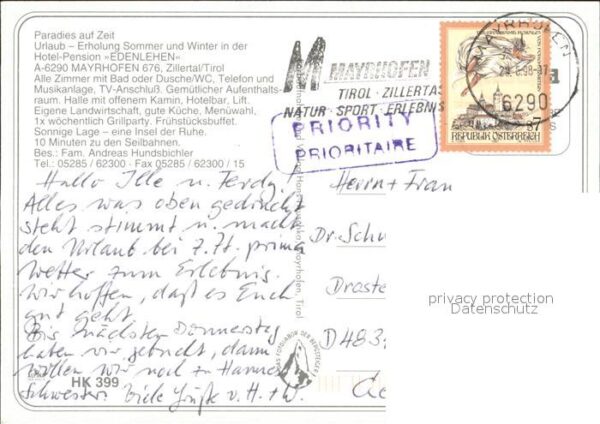 Paradies auf Zeit
Urlaub – Erholung Sommer und Winter in der
Hotel-Pension »EDENLEHEN«
A-6290 MAYRHOFEN 676, Zillertal/Tirol
Alle Zimmer mit Bad oder Dusche/WC, Telefon und
Musikanlage, TV-Anschluß. Gemütlicher Aufenthalts-
raum. Halle mit offenem Kamin, Hotelbar, Lift.
Eigene Landwirtschaft, gute Küche, Menüwahl,
1x wöchentlich Grillparty. Frühstücksbuffet.
Sonnige Lage – eine Insel der Ruhe.
10 Minuten zu den Seilbahnen.
Bes.: Fam. Andreas Hundsbichler
Tel.: 05285 / 62300 · Fax 05285 / 62300 / 15
Hallo Ille u. Ferdy!
Alles was oben gedruckt
steht stimmt u. macht
den Urlaub bei z.Zt. prima
Wetter zum Erlebnis.
Wir hoffen, daß es Euch
gut geht.
Bis nächsten Donnerstag
haben wir gebucht, dann
wollen wir noch zu
Schwester. Viele Grüße v. H. + W.
HK 399
MAYRHOFEN
TIROL · ZILLERTAL
NATUR · SPORT · ERLEBNIS
PRIORITY
PRIORITAIRE
MAYRHOFEN
6290
S 7
REPUBLIK ÖSTERREICH
Herrn + Frau
Dr. Schu
Droste
D 483
privacy protection
Datenschutz